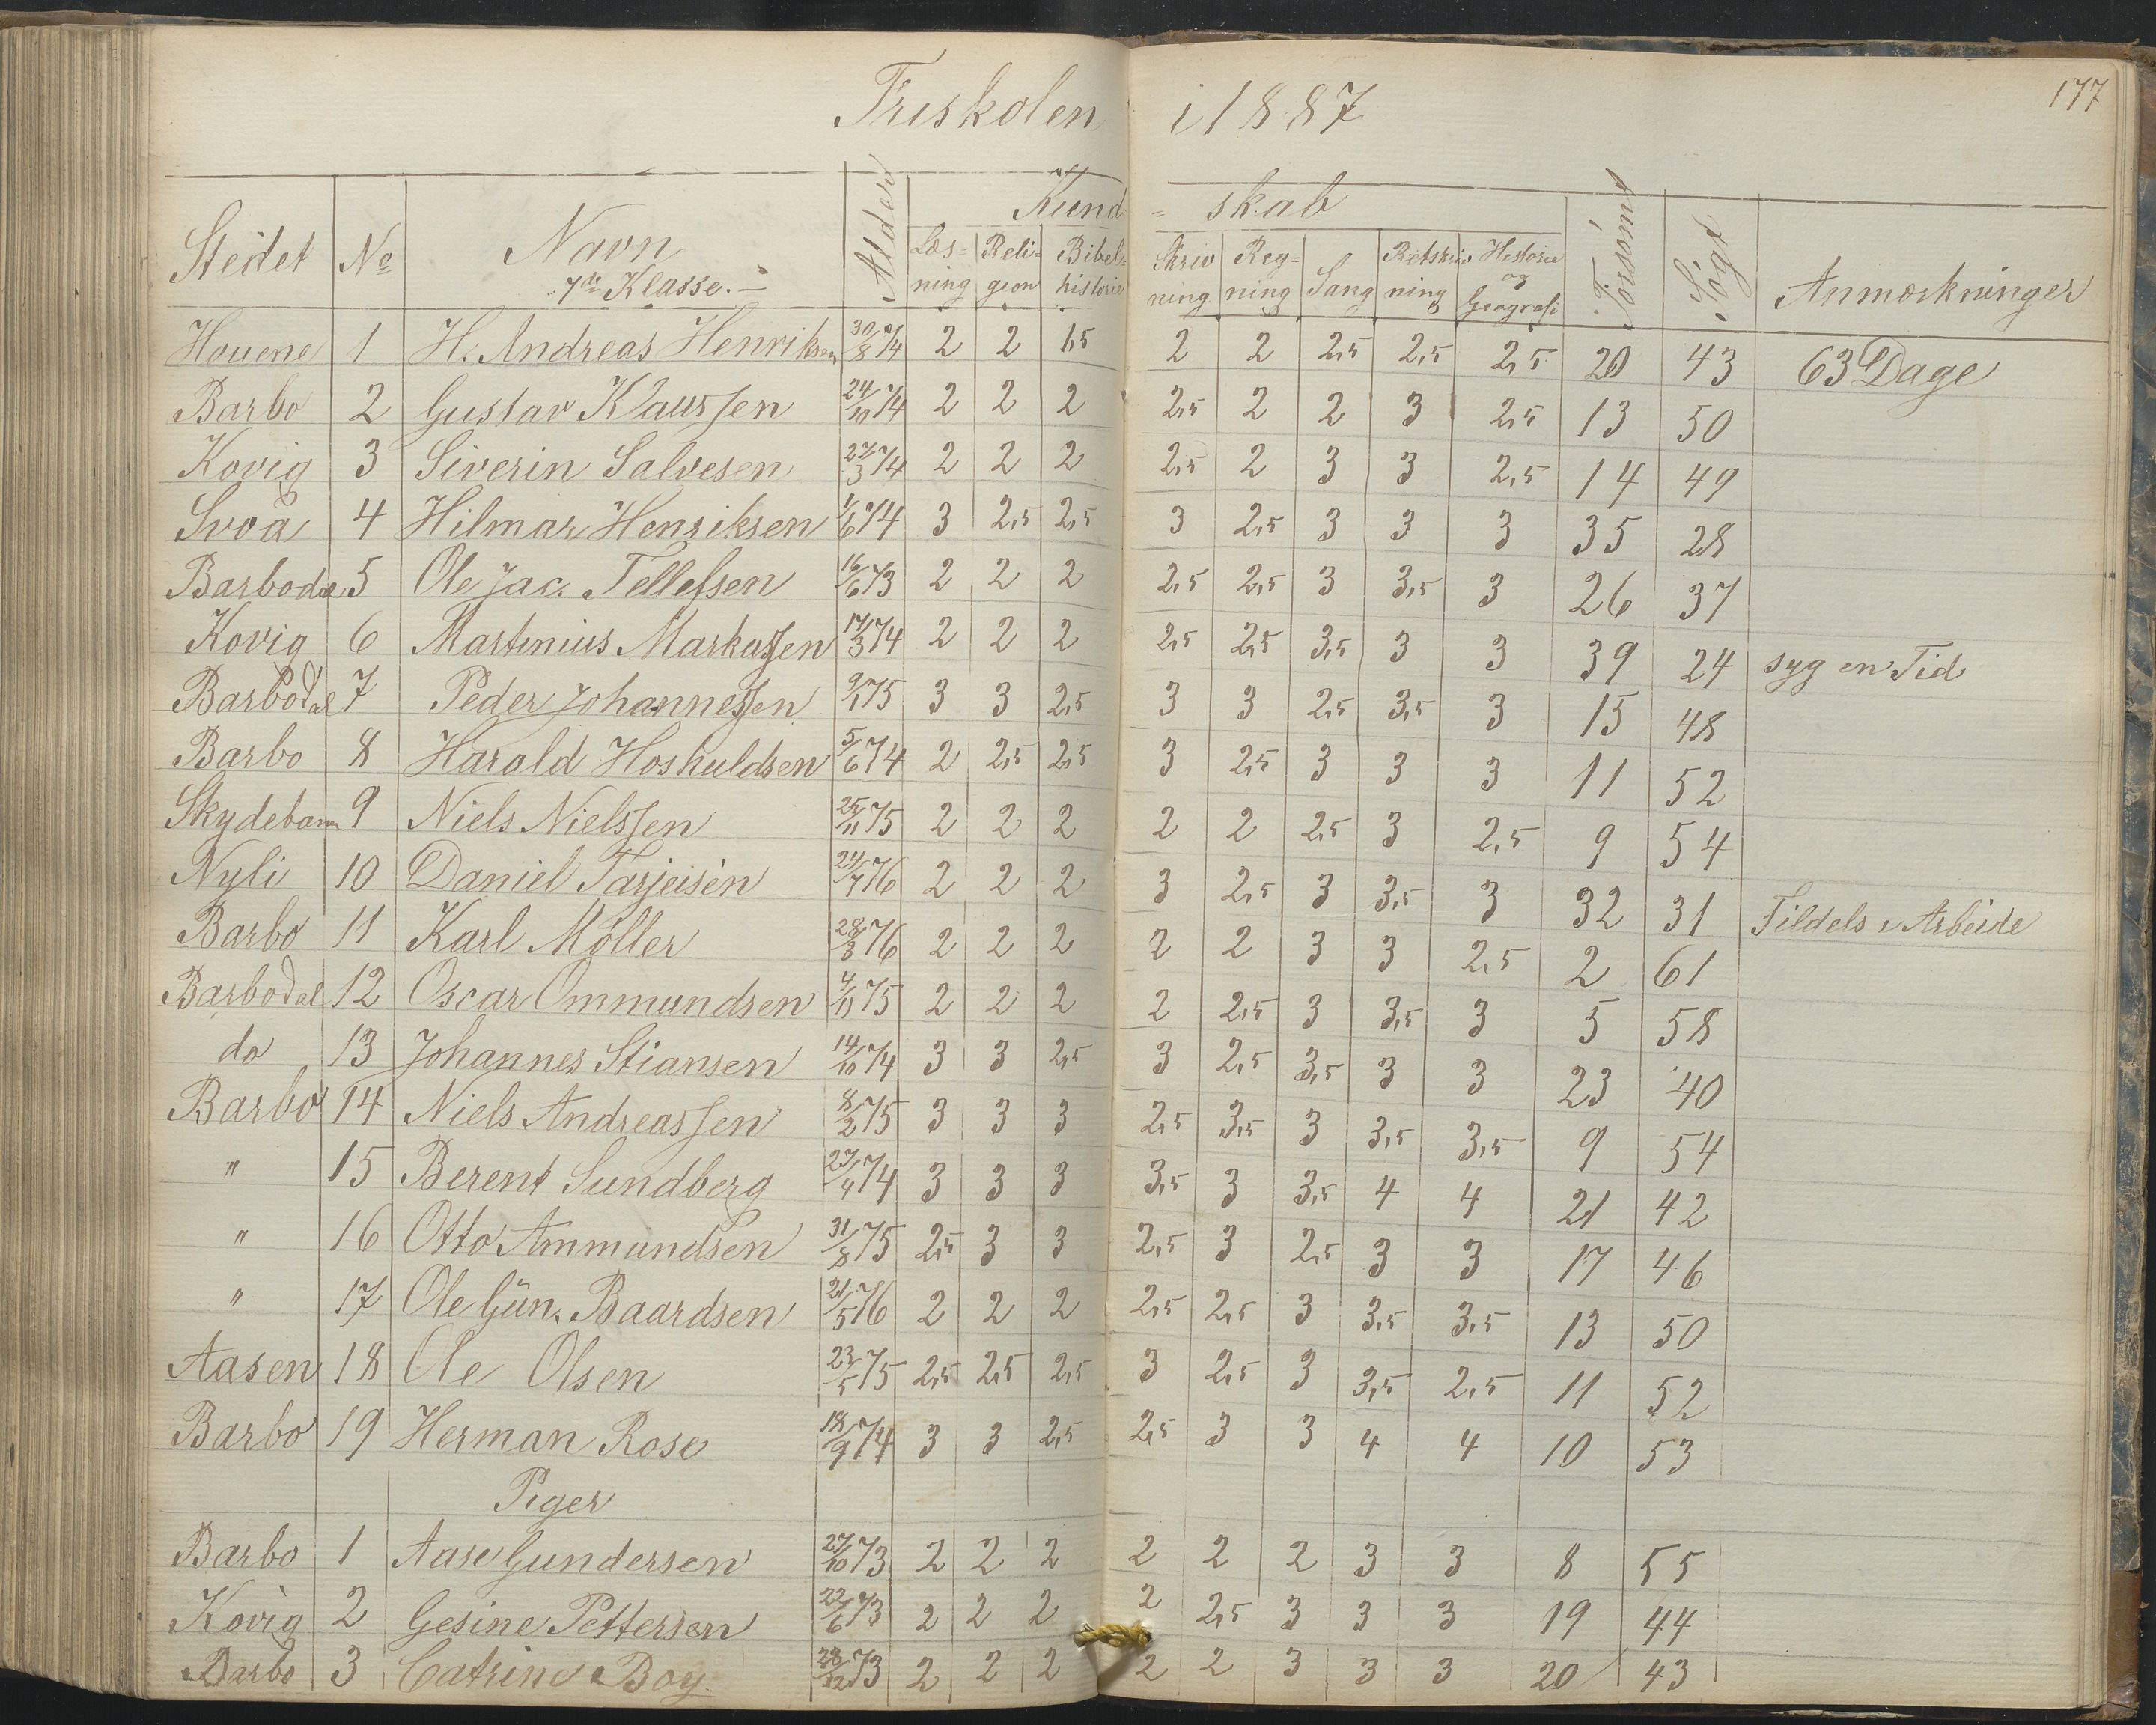 Friskolen i 1887
177
Stedet No Navn Alder Kund- skab Forsömt Sögt Anmærkninger
7de Klasse. Læs-ning Reli-gion Bibel-historie Skriv ning Reg-ning Sang Retskriv ning Historie og Geografi
Houene 1 H. Andreas Henriksen 30/8 74 2 2 1,5 2 2 2,5 2,5 2,5 20 43 63 Dage
Barbo 2 Gustav Klaussen 24/10 74 2 2 2 2,5 2 2 3 2,5 13 50
Kovig 3 Siverin Salvesen 27/3 74 2 2 2 2,5 2 3 3 2,5 14 49
Svoa 4 Hilmar Henriksen 1/6 74 3 2,5 2,5 3 2,5 3 3 3 35 28
Barbodal 5 Ole Jac. Tellefsen 16/6 73 2 2 2 2,5 2,5 3 3,5 3 26 37
Kovig 6 Martinius Markussen 17/3 74 2 2 2 2,5 2,5 3,5 3 3 39 24 syg en Tid
Barbodal 7 Peder Johannessen 9/1 75 3 3 2,5 3 3 2,5 3,5 3 15 48
Barbo 8 Harald Hoskuldsen 5/6 74 2 2,5 2,5 3 2,5 3 3 3 11 52
Skydebanen 9 Niels Nielssen 25/11 75 2 2 2 2 2 2,5 3 2,5 9 54
Nyli 10 Daniel Tarjeisen 24/7 76 2 2 2 3 2,5 3 3,5 3 32 31 Tildels i Arbeide
Barbo 11 Karl Möller 28/3 76 2 2 2 2 2 3 3 2,5 2 61
Barbodal 12 Oscar Ommundsen 4/11 75 2 2 2 2 2,5 3 3,5 3 5 58
do 13 Johannes Stiansen 14/10 74 3 3 2,5 3 2,5 3,5 3 3 23 40
Barbo 14 Niels Andreassen 8/2 75 3 3 3 2,5 3,5 3 3,5 3,5 9 54
" 15 Berent Sundberg 27/4 74 3 3 3 3,5 3 3,5 4 4 21 42
" 16 Otto Ammundsen 31/8 75 2,5 3 3 2,5 3 2,5 3 3 17 46
" 17 Ole Gün. Baardsen 21/5 76 2 2 2 2,5 2,5 3 3,5 3,5 13 50
Aasen 18 Ole Olsen 23/5 75 2,5 2,5 2,5 3 2,5 3 3,5 2,5 11 52
Barbo 19 Herman Rose 18/9 74 3 3 2,5 2,5 3 3 4 4 10 53
Piger
Barbo 1 Aase Gundersen 27/10 73 2 2 2 2 2 2 3 3 8 55
Kovig 2 Gesine Pettersen 22/6 73 2 2 2 2 2,5 3 3 3 19 44
Barbo 3 Catrine Boy 28/12 73 2 2 2 2 2 3 3 3 20 43